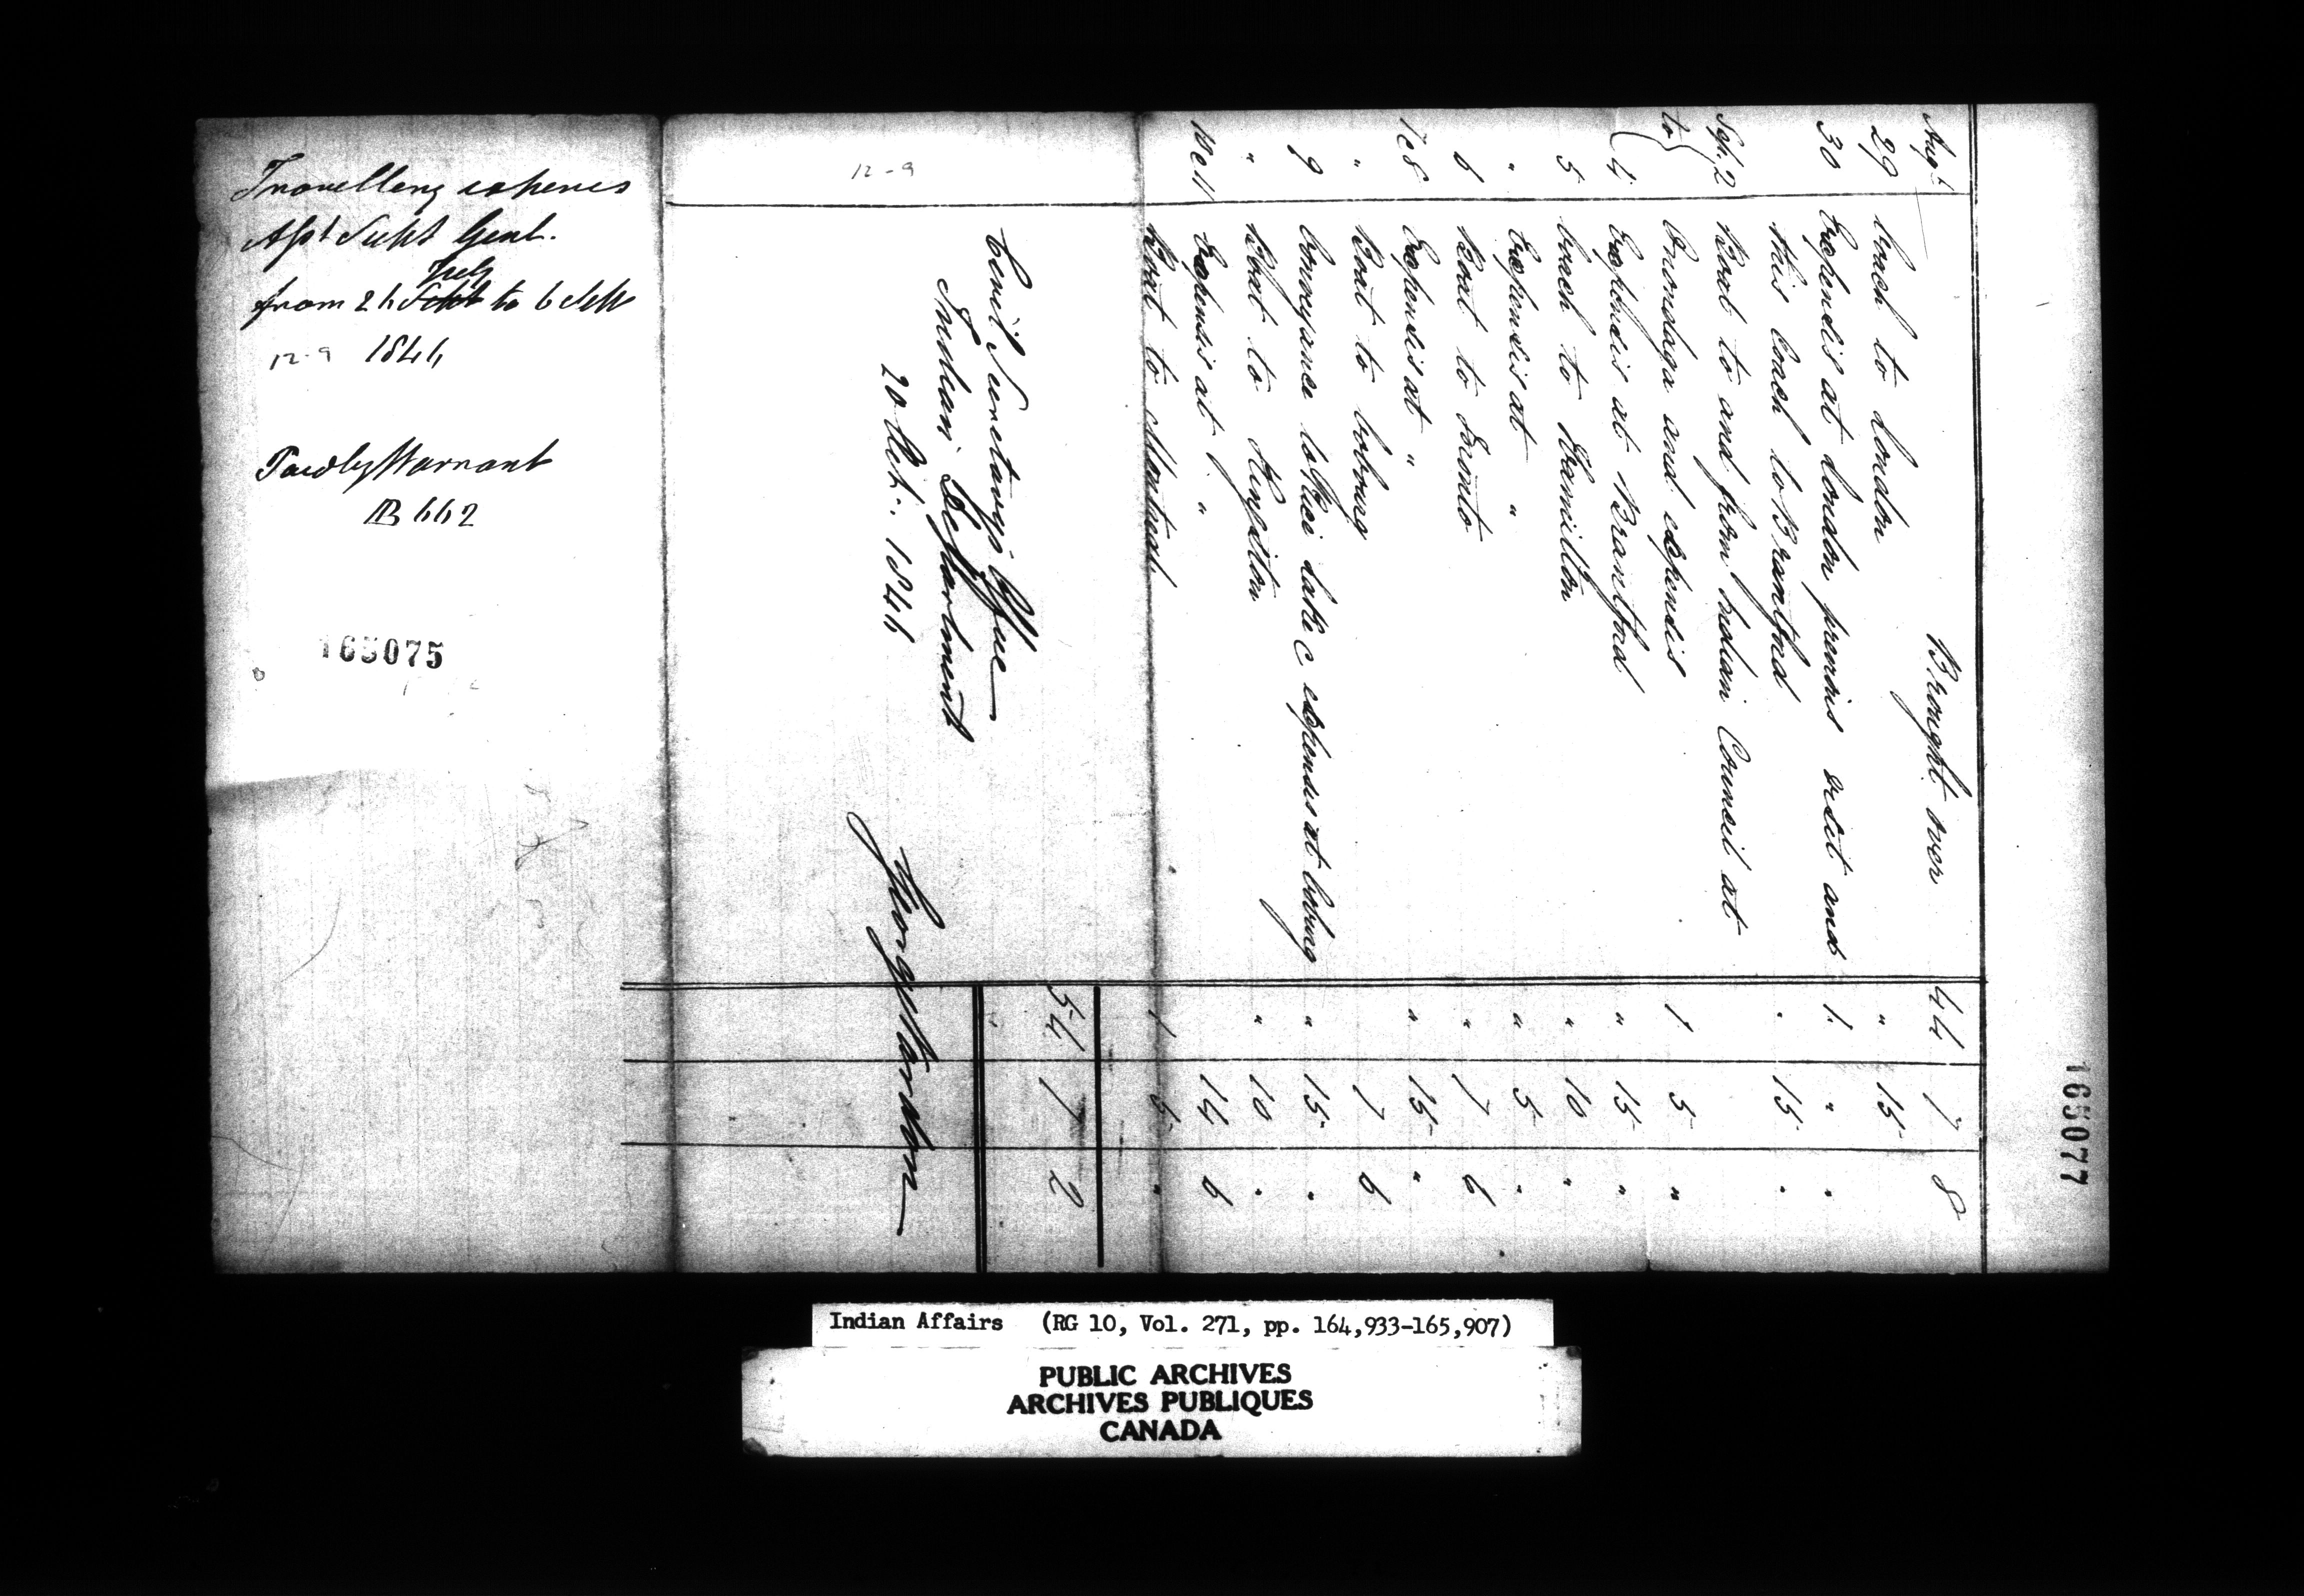 Travelling expenses
Asst Supt Genl.
from 26 July Sept to 6 Sept
12-9 1846
Paid by Warrant
B 662
165075
12-9
165077
Augt Brought over 44 7 8
29 Coach to London " 15
30 Expenses at London previous visit and 1 " "
this Coach to Brantford " 15 "
Sept. 2 Boat to and from Indian Council at
to Onondaga and expenses 1 5 "
4 Expenses at Brantford " 15 "
5 Coach to Hamilton " 10 "
" Expenses at " " 5 "
6 Boat to Toronto " 7 6
7 & 8 Expenses at " " 15 "
" Boat to Cobourg 7 6
9 Conveyance to Rice Lake & expenses at Cobourg " 15 "
" Boat to Kingston " 10 "
10 & 11 Expenses at " 14 6
Boat to Montreal 1 5 "
54 7 2
Civil Secretary's Office
Indian Department
20 Oct. 1846
George Vardon
Indian Affairs (RG 10, Vol. 271, pp. 164,933-165,907)
PUBLIC ARCHIVES
ARCHIVES PUBLIQUES
CANADA